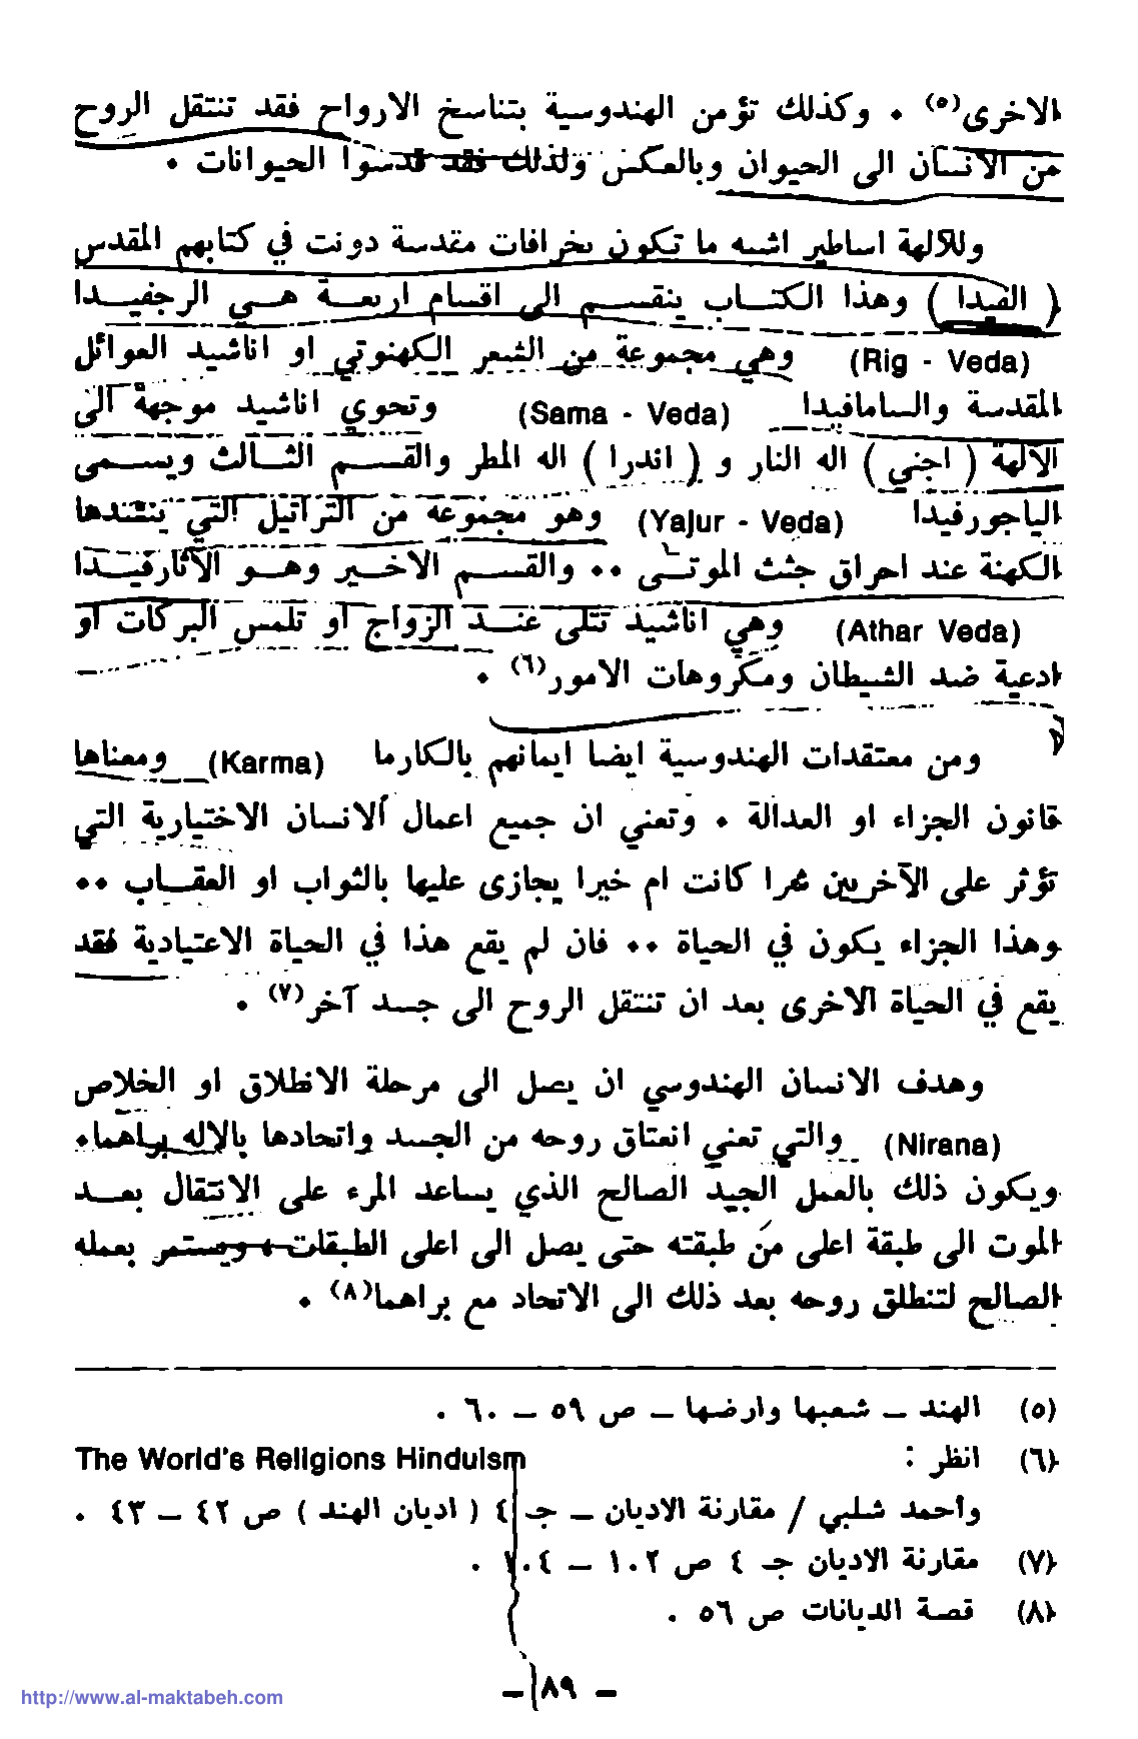 الاخرى(٥) ٠ وكذلك تؤمن الهندوسية بتناسخ الارواح فقد تنتقل الروح
من الانسان الى الحيوان وبالعكس ولذلك فقد قدسوا الحيوانات ٠
وللآلهة اساطير اشبه ما تكون بخرافات مقدسة دونت في كتابهم المقدس
( الفيدا ) وهذا الكتاب ينقسم الى اقسام اربعة هي الرجفيدا
(Rig - Veda) وهي مجموعة من الشعر الكهنوتي او اناشيد العوائل
المقدسة والسامافيدا (Sama - Veda) وتحوي اناشيد موجهة الى
الآلهة ( اجني ) اله النار و ( اندرا ) اله المطر والقسم الثالث ويسمى
الياجورفيدا (Yajur - Veda) وهو مجموعة من التراتيل التي ينشدها
الكهنة عند احراق جثث الموتى ٠٠ والقسم الاخير وهو الآثارفيدا
(Athar Veda) وهي اناشيد تتلى عند الزواج او تلمس البركات او
ادعية ضد الشيطان ومكروهات الامور(٦) ٠
ومن معتقدات الهندوسية ايضا ايمانهم بالكارما (Karma) ومعناها
قانون الجزاء او العدالة ٠ وتعني ان جميع اعمال الانسان الاختيارية التي
تؤثر على الآخريين شرا كانت ام خيرا يجازى عليها بالثواب او العقاب ٠٠
وهذا الجزاء يكون في الحياة ٠٠ فان لم يقع هذا في الحياة الاعتيادية فقد
يقع في الحياة الاخرى بعد ان تنتقل الروح الى جسد آخر(٧) ٠
وهدف الانسان الهندوسي ان يصل الى مرحلة الانطلاق او الخلاص
(Nirana) والتي تعني انعتاق روحه من الجسد واتحادها بالاله براهما٠
ويكون ذلك بالعمل الجيد الصالح الذي يساعد المرء على الانتقال بعد
الموت الى طبقة اعلى من طبقته حتى يصل الى اعلى الطبقات ، ويستمر بعمله
الصالح لتنطلق روحه بعد ذلك الى الاتحاد مع براهما(٨) ٠
(٥) الهند ــ شعبها وارضها ــ ص ٥٩ ــ ٦٠ .
(٦) انظر : The World's Religions Hinduism
وأحمد شلبي / مقارنة الاديان ــ جـ ٤ ( اديان الهند ) ص ٤٢ ــ ٤٣ .
(٧) مقارنة الاديان جـ ٤ ص ١٠٢ ــ ١٠٤ .
(٨) قصة الديانات ص ٥٦ .
ــ ٨٩ ــ
http://www.al-maktabeh.com